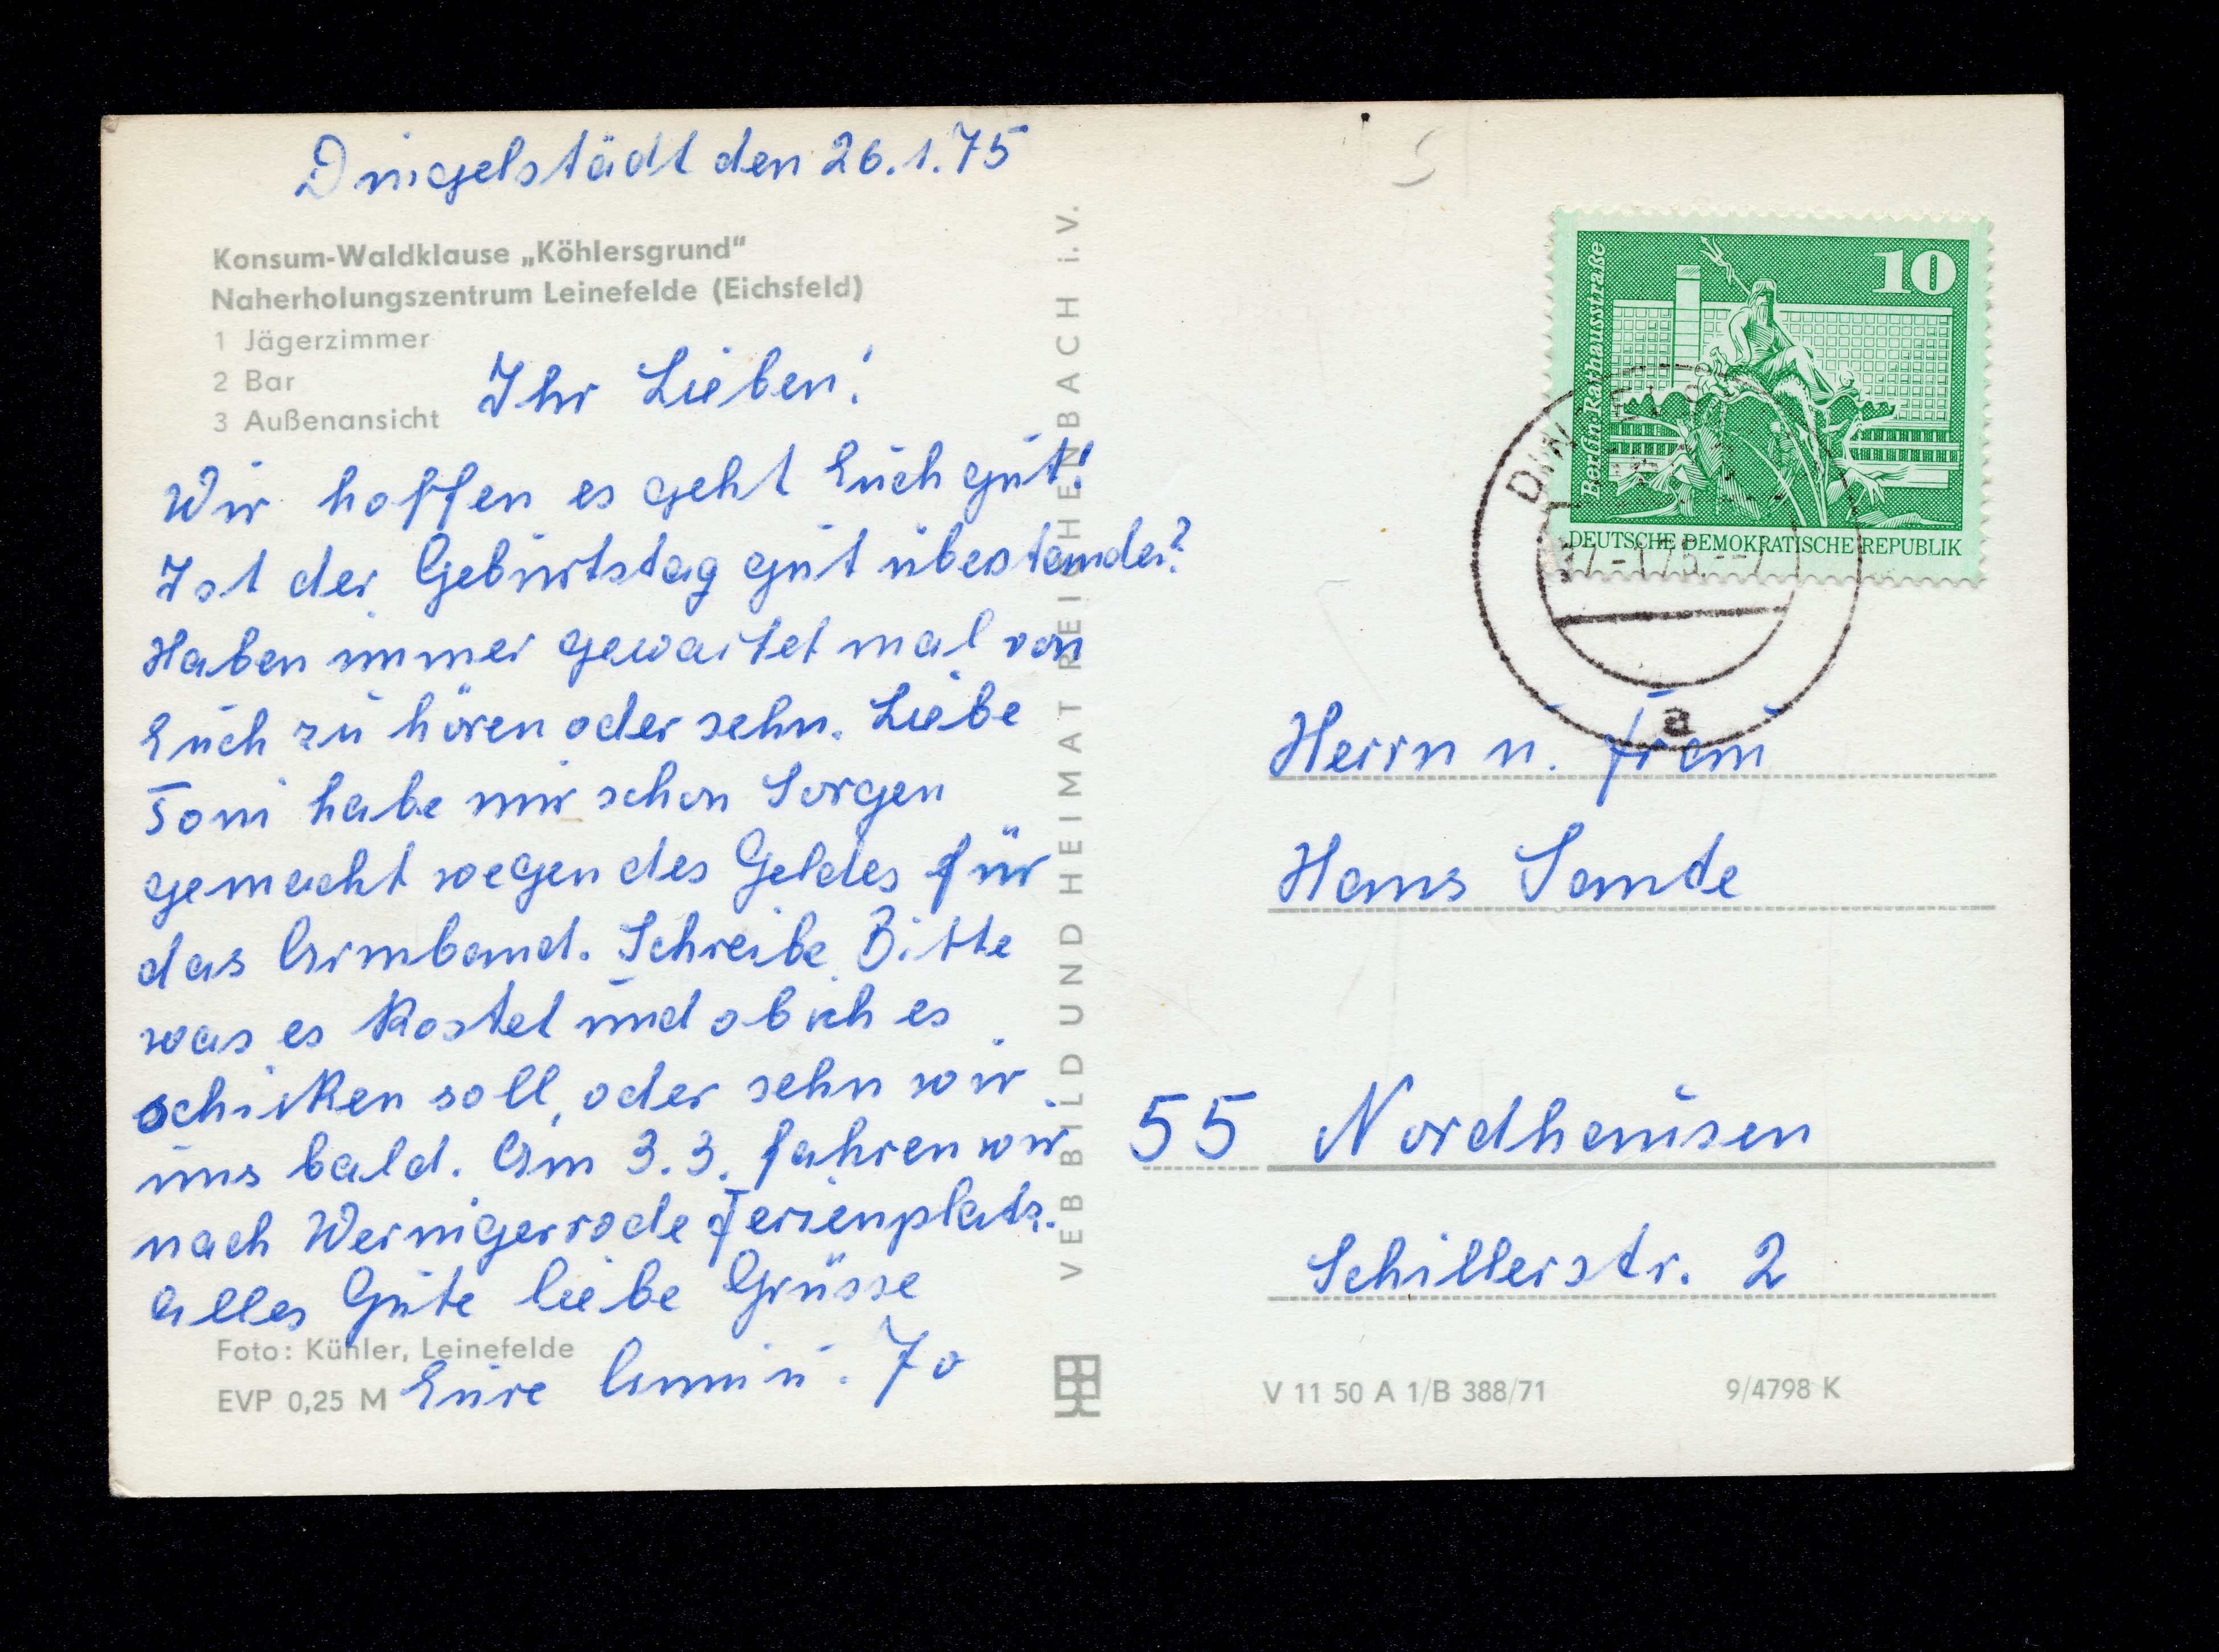 Dingelstädt den 26.1.75
Konsum-Waldklause „Köhlersgrund“
Naherholungszentrum Leinefelde (Eichsfeld)
1 Jägerzimmer
2 Bar
3 Außenansicht
Ihr Lieben!
Wir hoffen es geht Euch gut!
Ist der Geburtstag gut überstanden?
Haben immer gewartet mal von
Euch zu hören oder sehn. Liebe
Toni habe mir schon Sorgen
gemacht wegen des Geldes für
das Armband. Schreibe Bitte
was es kostet und ob ich es
schicken soll, oder sehn wir
uns bald. Am 3.3. fahren wir
nach Wernigerrode Ferienplatz.
Alles Gute liebe Grüsse
Eure Anni u. Jo
Foto: Kühler, Leinefelde
EVP 0,25 M
VEB BILD UND HEIMAT REICHENBACH i.V.
10
Berlin Rathausstraße
DEUTSCHE DEMOKRATISCHE REPUBLIK
a
Herrn u. Frau
Hans Sande
55 Nordhausen
Schillerstr. 2
V 11 50 A 1/B 388/71
9/4798 K